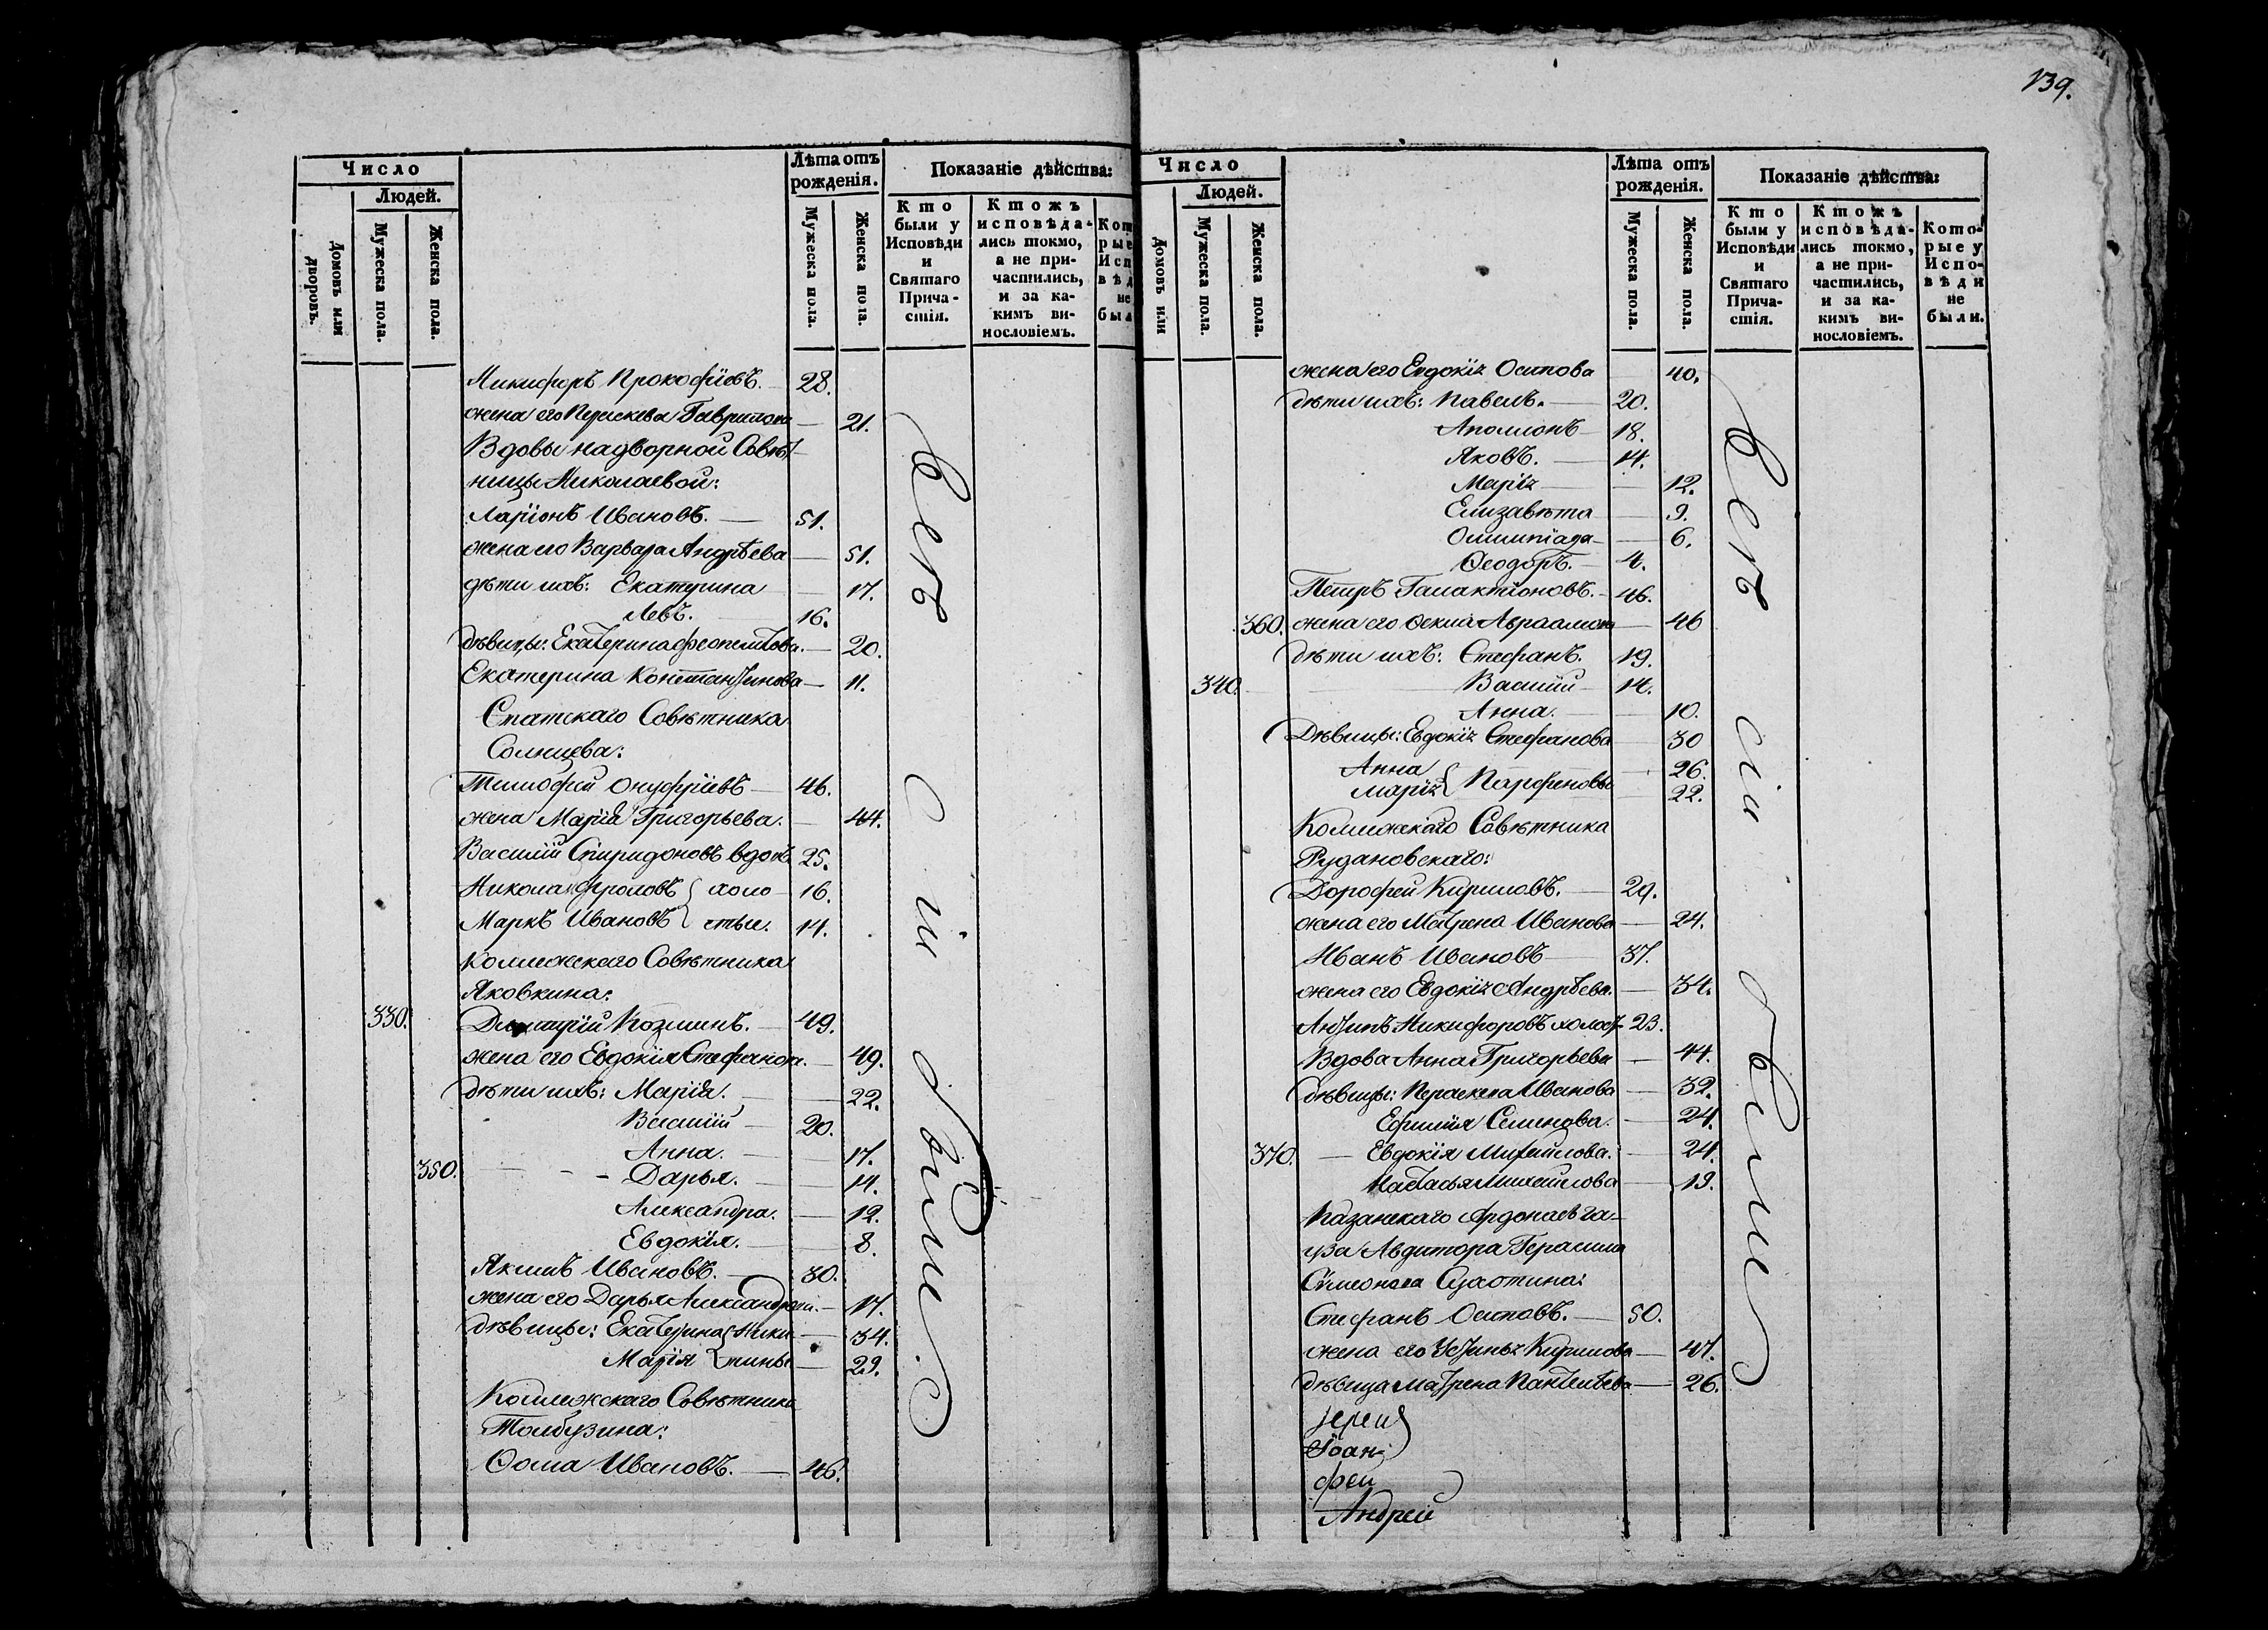 Число
Людей.
Домовъ или дворовъ.
Мужеска пола.
Женска пола.
Лѣта отъ рожденія.
Мужеска пола.
Женска пола.
Показаніе дѣйства:
Кто были у Исповѣди и Святаго Прича-стія.
Ктожъ исповѣда-лись токмо, а не при-частились, и за ка-кимъ ви-нословіемъ.
Микифоръ Прокофіевъ. 28.
жена его 21.
Вдовы надворной Совѣт
ницы Николаевой:
Ларіонъ Ивановъ. 51.
жена его Варвара Андрѣева 51.
дѣти ихъ: Екатерина 17.
Левъ. 16.
дѣвицы: Екатерина 20.
Екатерина Константинова 11.
Статскаго Совѣтника
Солнцева:
Тимофей Онуфріевъ 46.
жена Марія Григорьева. 44.
Василій Спиридоновъ вдовъ 25.
Николай Фроловъ холо 16.
Маркъ Ивановъ стые. 14.
Коллежскаго Совѣтника
Яковкина:
330. Димитрій Козминъ. 49.
жена его Евдокія Стефанова. 49.
дѣти ихъ: Марія. 22.
Василій 20.
Анна. 17.
350. Дарья. 14.
Александра. 12.
Евдокія. 8.
Якимъ Ивановъ. 30.
жена его Дарья 17.
дѣвицы: Екатерина Ники 34.
Марія тины 29.
Коллежскаго Совѣтника
Толбузина:
Ѳома Ивановъ. 46.
Всѣ сіи были
139.
Число
Людей.
Домовъ или
Мужеска пола.
Женска пола.
Лѣта отъ рожденія.
Мужеска пола.
Женска пола.
Показаніе дѣйства:
Кто были у Исповѣди и Святаго Прича-стія.
Ктожъ исповѣда-лись токмо, а не при-частились, и за ка-кимъ ви-нословіемъ.
Кото-рые у Испо-вѣди не были.
жена его Евдокія Осипова 40.
дѣти ихъ: Павелъ. 20.
Аполлонъ 18.
Яковъ. 14.
Марія 12.
Елизавѣта 9.
Олимпіада 6.
Ѳеодоръ. 4.
Петръ Галактіоновъ. 46.
360. жена его Ѳекла 46
дѣти ихъ: Стефанъ. 19.
340. Василій 14.
Анна. 10.
Дѣвицы: Евдокія Стефанова 30
Анна 26.
Марія Парфеновы 22.
Коллежскаго Совѣтника
Рудановскаго:
Дорофей Кириловъ. 29.
жена его Матрена Иванова 24.
Иванъ Ивановъ 37.
жена его Евдокія Андрѣева. 34.
Антипъ Никифоровъ холост 23.
Вдова Анна Григорьева 44.
дѣвицы: Параскева Иванова 32.
Ефимія Семенова. 24.
370. Евдокія Михайлова. 24.
Настасья Михайлова 19.
Казанскаго
Авдитора Герасима
Сухотина:
Стефанъ Осиповъ. 50.
жена его Устинья Кирилова 47.
дѣвица Матрена 26.
Іерей
Андрей
Всѣ сіи были